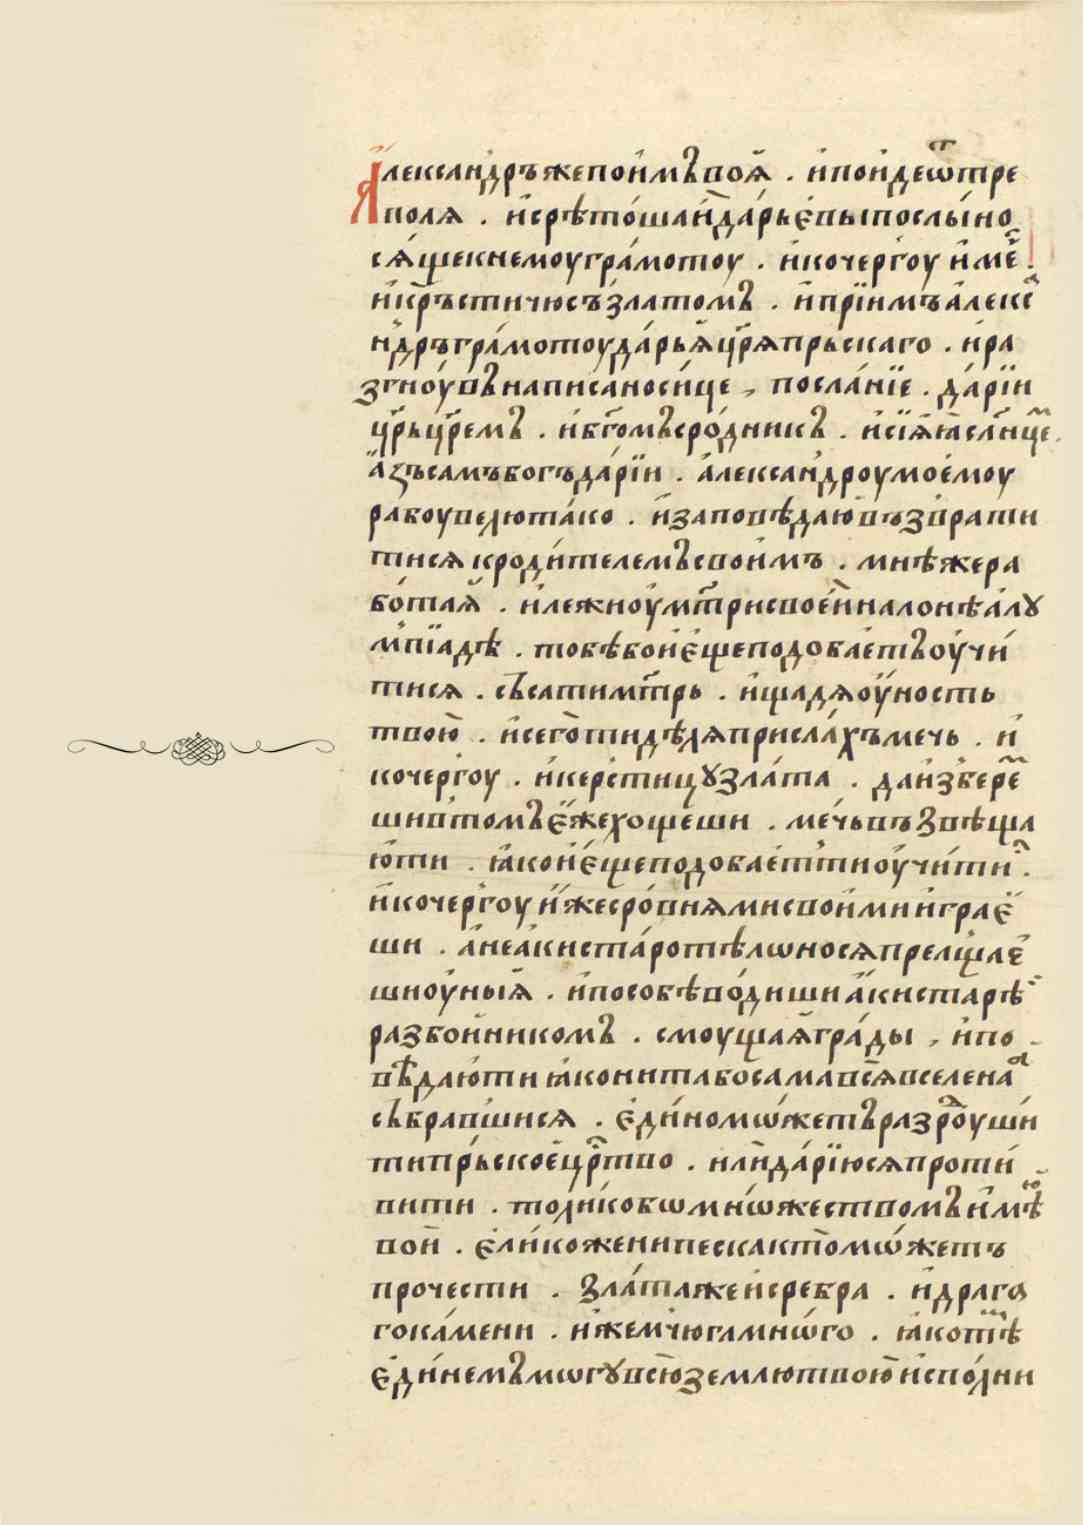 Александръ же поимъ воя . и поиде ѿ тре
поля . и срѣтоша и дарьевы послы но
сяще к нему грамотоу . и кочергоу и мѣ
и кръстичю съ златомъ . и приимъ алекса
ндръ грамотоу дарья цр҃я прьскаго . и ра
згноувъ написано сице , посланїе . дарїи
цр҃ь цр҃емъ . и бг҃омъ сродникъ . и сїяꙗ с слнцем
азъ самъ богъ дарїи . александроу моемоу
рабоу велю тако . и заповѣдаю възврати
тися к родителемъ своимъ . мнѣ же ра
ботая . и лежноу мт҃ри своей на лонѣ алꙋ
мпїадѣ . тобѣ бо и еще подобаетъ оучи
тися . съсати мт҃рь . и щадя оуность
твою . и сего ти дѣля прислахъ мечь . и
кочергоу . и керстицꙋ злата . да избере
ши в томъ еже хощеши . мечь възвѣща
ют ти . ꙗко и еще подобает ти оучити с .
и кочергоу иже с ровнями своими играе
ши . а не аки старо тѣлѡ нося прелщае
ши оуныя . и по собѣ водиши аки старѣ
разбойникомъ . смоущая грады , и по
вѣдают ти ꙗко ни та бо сама вся вселена
събравшися . единомѡжетъ разроуши
ти прьское цр҃тво . или дарїю ся проти
вити . толико бѡ мнѡжествомъ имѣю
вои . елико же ни песка кто мѡжетъ
прочести . злата же и сребра . и драго
го камени . и жемчюга мнѡго . ꙗко тѣ
единемъ мѡгꙋ всю землю твою исполни